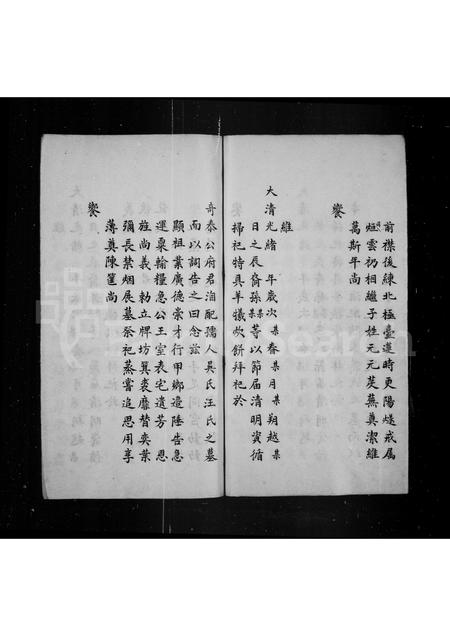 前襟後練北極臺邊時更陽燧戒属
烜雲礽相繼子姓元元苾蕪奠潔維
萬斯年尚
饗
維
大清光緒 年歲次某春某月某朔越某
日之辰裔孫某某等以節届清明寅循
掃祀特具羊犧飲餅拜祀於
奇泰公府君洎配孺人吳氏汪氏之墓
而以詞告之曰念兹
顯祖業廣德崇才行甲鄉邉陲告急
運粟輸糧急公王室表宅遺芳恩
旌尚義勅立牌坊箕裘靡替奕葉
彌長禁烟展墓祭祀蒸嘗追思用享
薄奠陳筐尚
饗